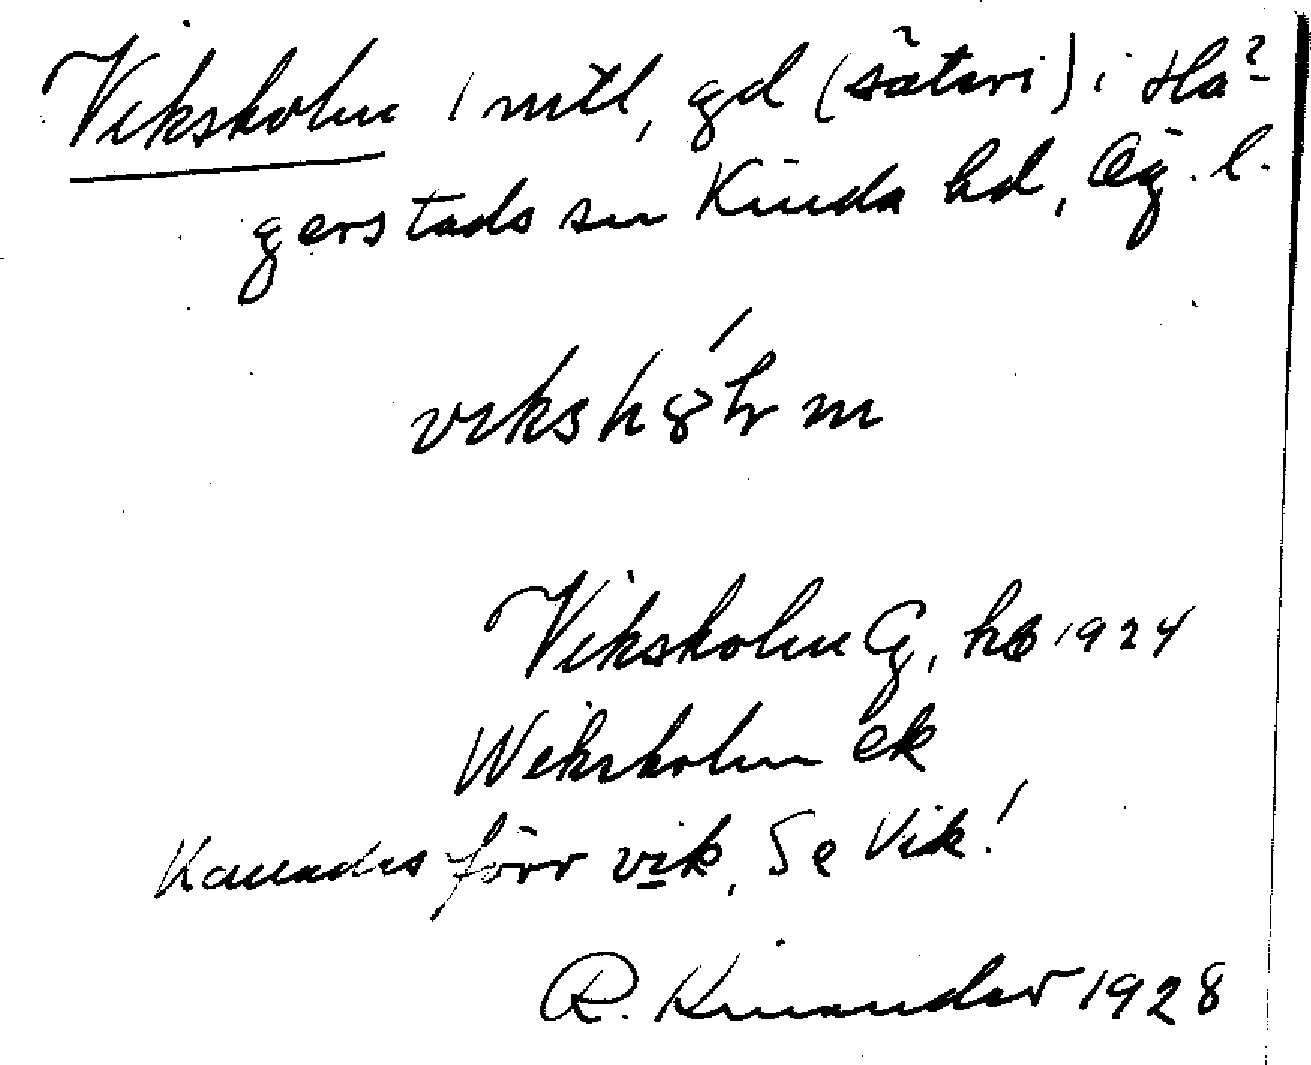 Viksholm 1 mtl, gd (säteri) i Hä-
gerstads sn Kinda hd, Ög. l.
vikshóļm
Viksholm G, hb 1924
Wiksholm ek
Kallades förr vik. Se Vik!
R. Kinander 1928